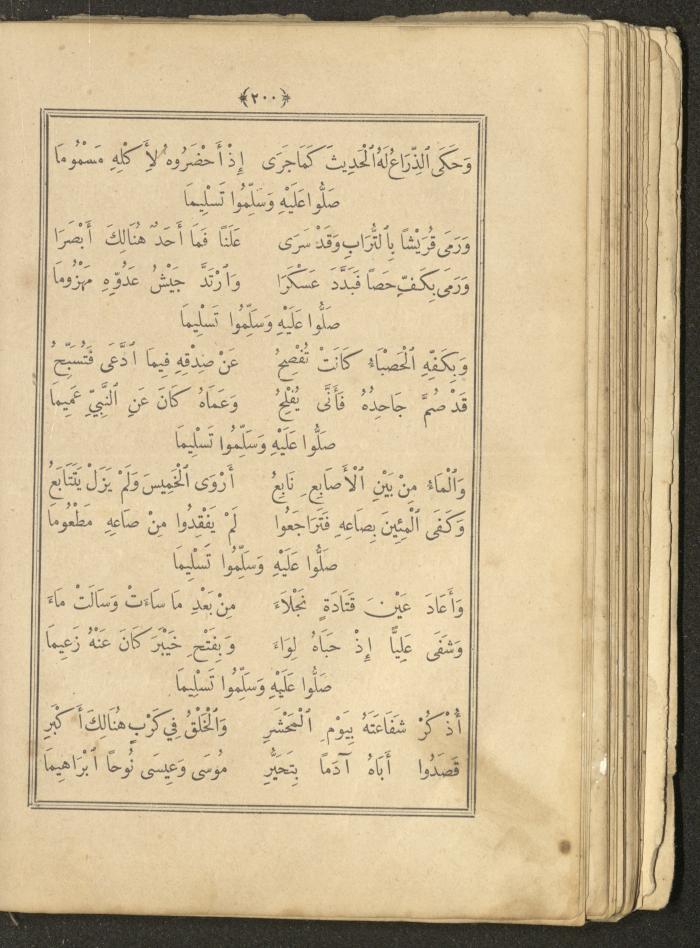 ﴿٢٠٠﴾
وَحَكَى ٱلذِّرَاعُ لَهُ ٱلْحَدِيثَ كَمَا جَرَى إِذْ أَحْضَرُوهُ لِأَكْلِهِ مَسْمُومَا
صَلُّوا عَلَيْهِ وَسَلِّمُوا تَسْلِيمَا
وَرَمَى قُرَيْشًا بِٱلتُّرَابِ وَقَدْ سَرَى عَلَنًا فَمَا أَحَدٌ هُنَالِكَ أَبْصَرَا
وَرَمَى بِكَفِّ حَصًا فَبَدَّدَ عَسْكَرَا وَٱرْتَدَّ جَيْشُ عَدُوِّهِ مَهْزُومَا
صَلُّوا عَلَيْهِ وَسَلِّمُوا تَسْلِيمَا
وَبِكَفِّهِ ٱلْحَصْبَاءُ كَانَتْ تُفْصِحُ عَنْ صِدْقِهِ فِيمَا ٱدَّعَى فَتُسَبِّحُ
قَدْ صُمَّ جَاحِدُهُ فَأَنَّى يُفْلِحُ وَعَمَاهُ كَانَ عَنِ ٱلنَّبِيِّ عَمِيمَا
صَلُّوا عَلَيْهِ وَسَلِّمُوا تَسْلِيمَا
وَٱلْمَاءُ مِنْ بَيْنِ ٱلْأَصَابِعِ نَابِعُ أَرْوَى ٱلْخَمِيسَ وَلَمْ يَزَلْ يَتَتَابَعُ
وَكَفَى ٱلْمِئِينَ بِصَاعِهِ فَتَرَاجَعُوا لَمْ يَفْقِدُوا مِنْ صَاعِهِ مَطْعُومَا
صَلُّوا عَلَيْهِ وَسَلِّمُوا تَسْلِيمَا
وَأَعَادَ عَيْنَ قَتَادَةٍ نَجْلَاءَ مِنْ بَعْدِ مَا سَاءَتْ وَسَالَتْ مَاءَ
وَشَفَى عَلِيًّا إِذْ حَبَاهُ لِوَاءَ وَبِفَتْحِ خَيْبَرَ كَانَ عَنْهُ زَعِيمَا
صَلُّوا عَلَيْهِ وَسَلِّمُوا تَسْلِيمَا
أُذْكُرْ شَفَاعَتَهُ بِيَوْمِ ٱلْمَحْشَرِ وَٱلْخَلْقُ فِي كَرْبٍ هُنَالِكَ أَكْبَرِ
قَصَدُوا أَبَاهُ آدَمًا بِتَحَيُّرِ مُوسَى وَعِيسَى نُوحًا ٱبْرَاهِيمَا